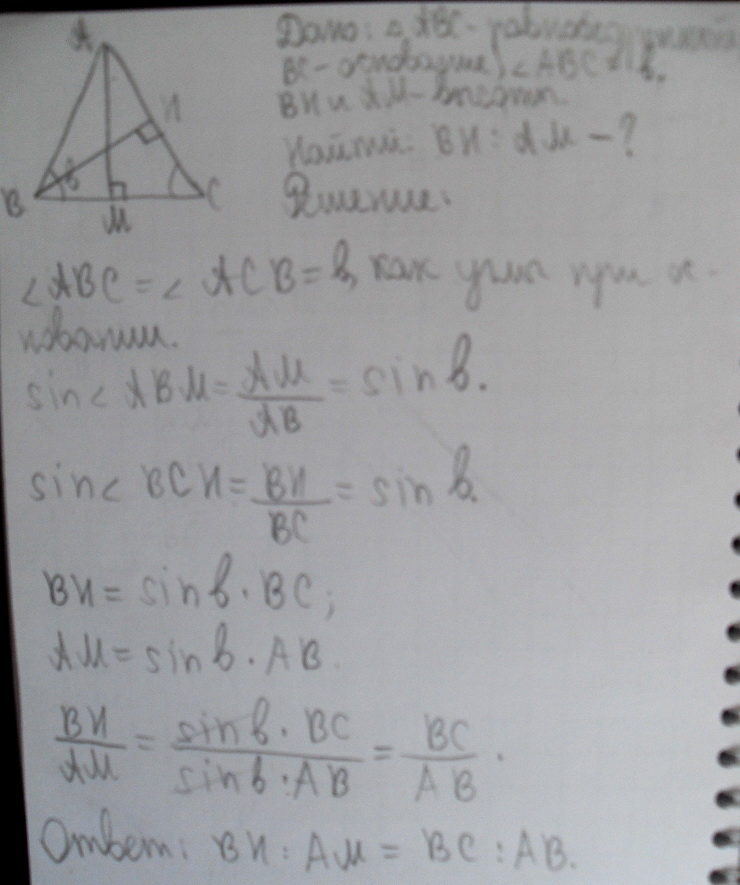 A
B
C
M
H
b
Дано: △ ABC - равнобедренный
BC - основание, ∠ ABC = b,
BH и AM - высоты.
Найти: BH : AM - ?
Решение:
∠ ABC = ∠ ACB = b, как углы при о-
новании.
sin∠ ABM = AM/AB = sin b.
sin∠ BCH = BH/BC = sin b.
BH = sin b · BC;
AM = sin b · AB.
BH/AM = sin b · BC / sin b · AB = BC/AB.
Ответ: BH : AM = BC : AB.